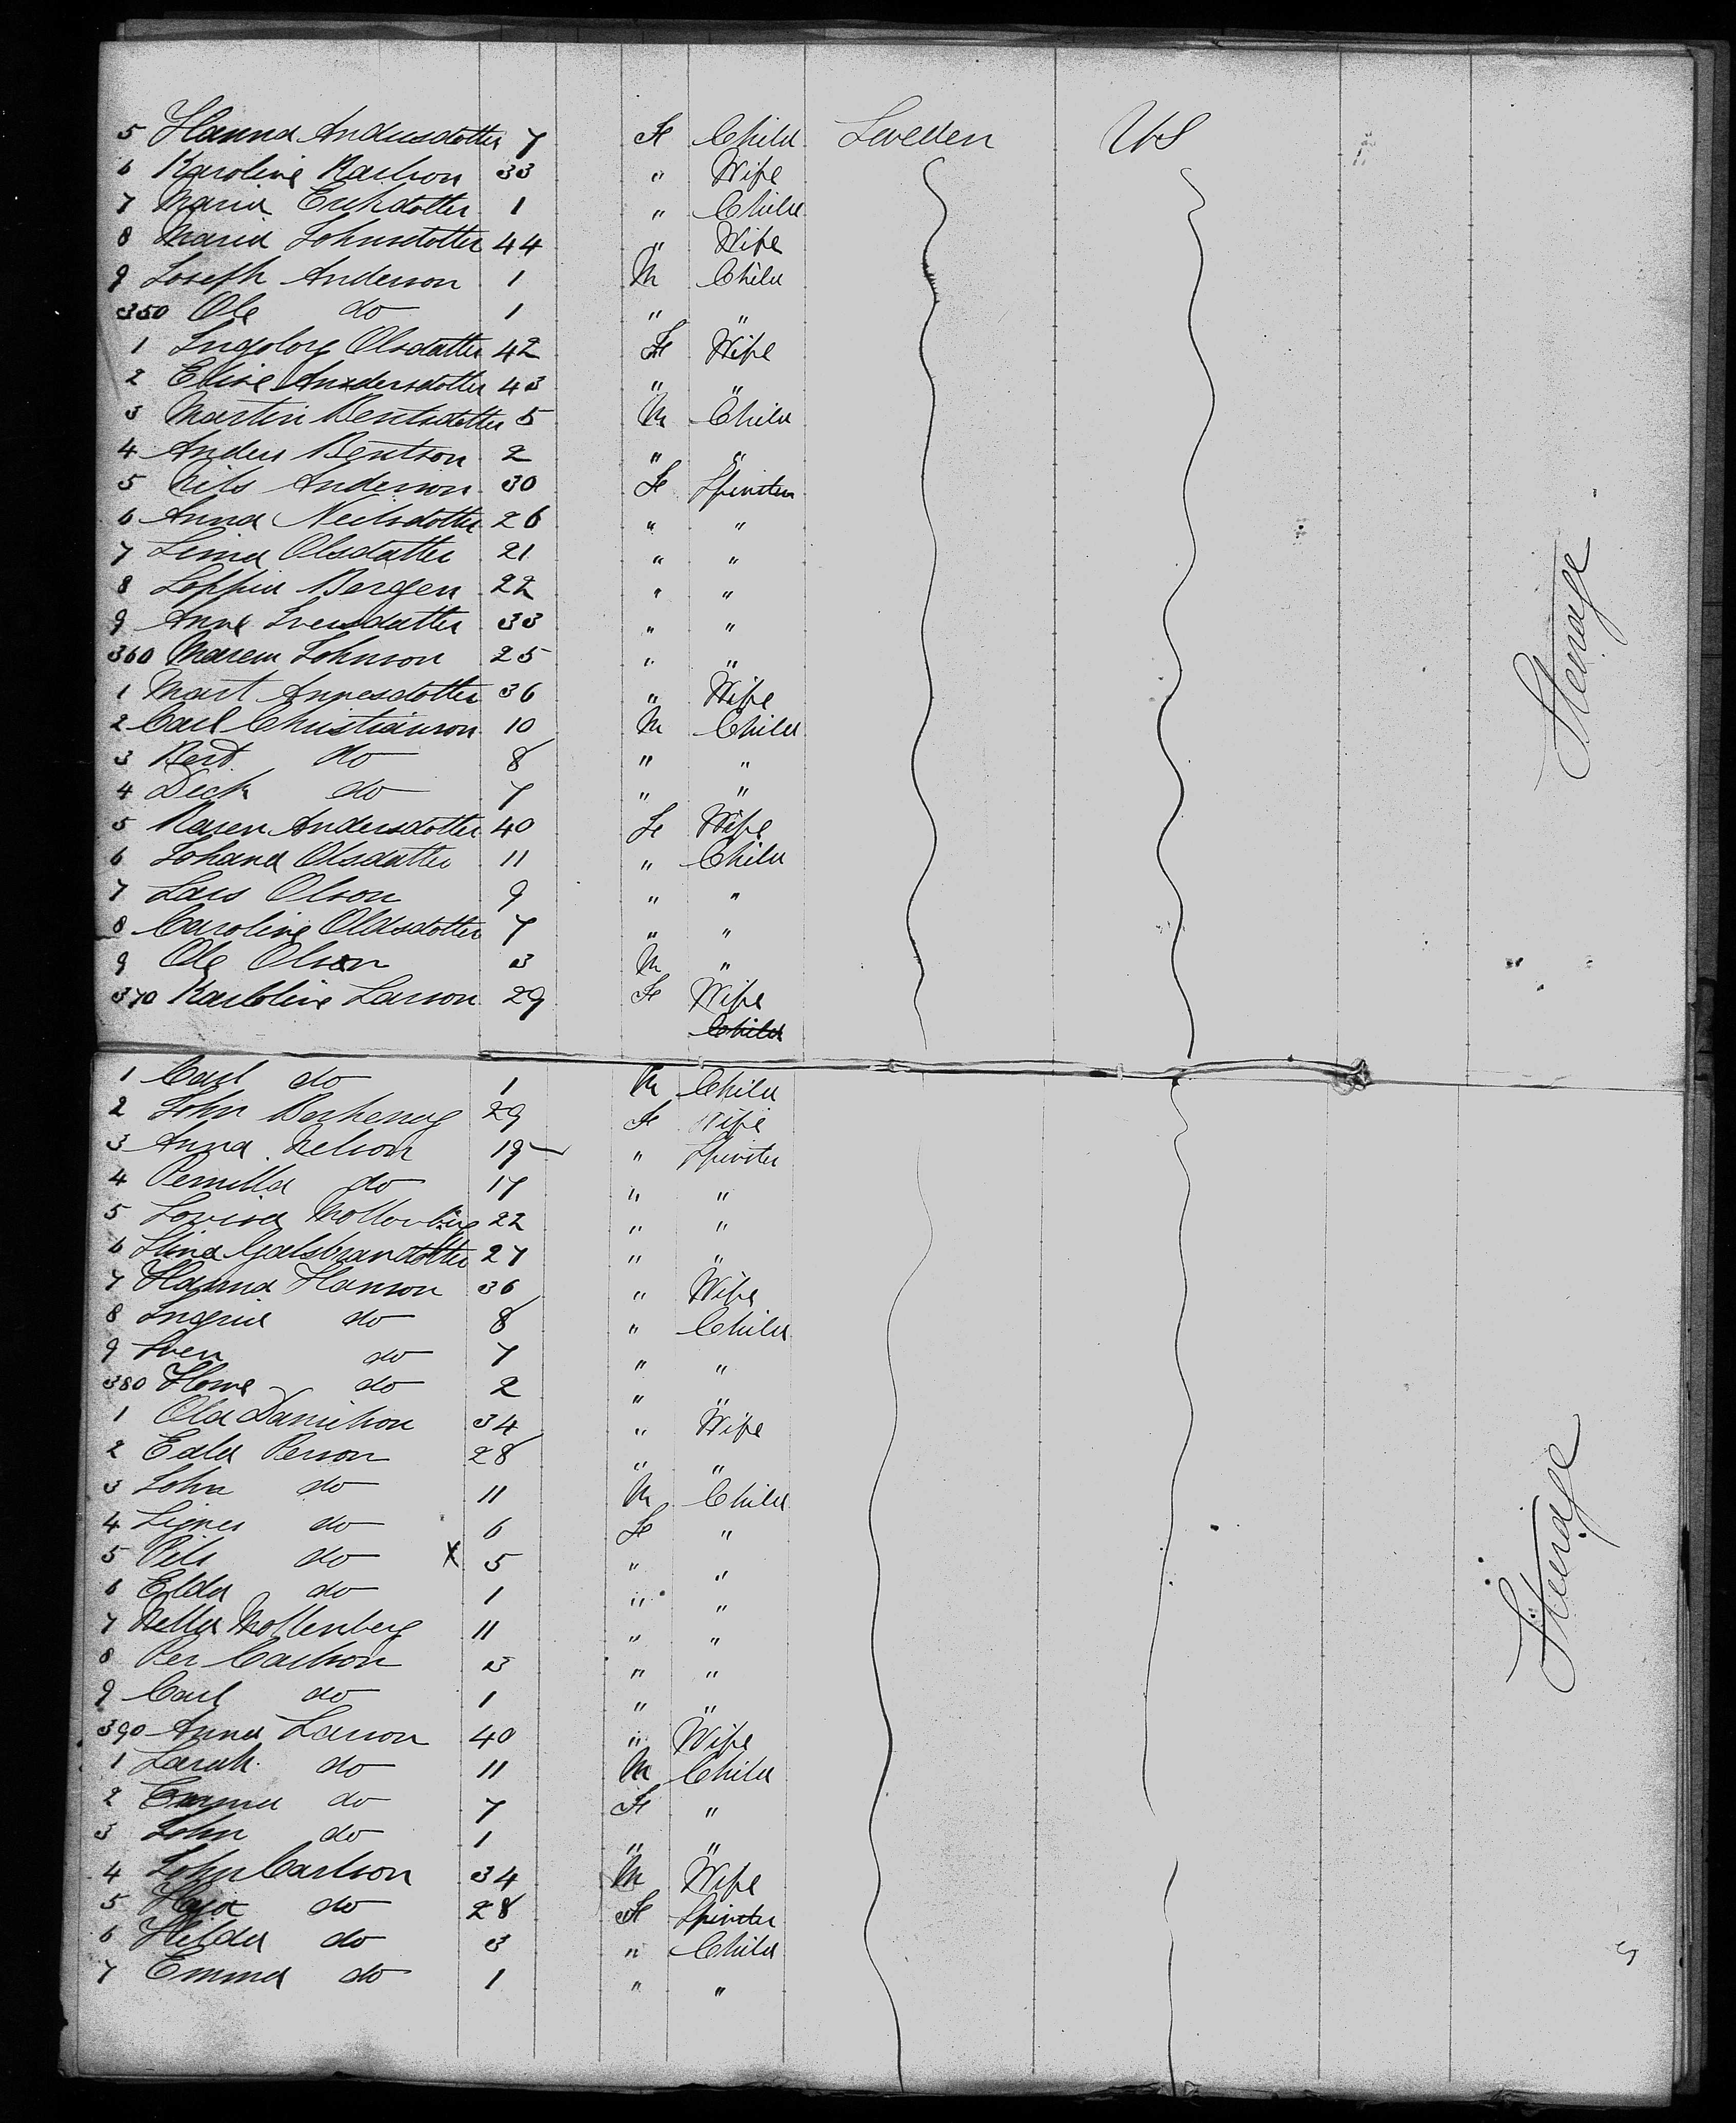 5 Hanna Andersdotter 7 Fe Child Sweden US
6 Karoline Karlson 33 " Wife
7 Maria Erikdotter 1 " Child
8 Maria Johnsdotter 44 " Wife
9 Joseph Anderson 1 M Child
350 Ole do 1 " "
1 Ingoborg Olsdatter 42 Fe Wife
2 Elise Andersdotter 43 " "
3 Martin Bentsdotter 5 M Child
4 Anders Bentson 2 " "
5 Nils Anderson 30 Fe Spinster
6 Anna Neilsdotter 26 " "
7 Lina Olsdatter 21 " "
8 Soffia Bergen 22 " "
9 Anne Svensdatter 33 " "
360 Maren Johnson 25 " "
1 Mart Annesdotter 36 " Wife
2 Carl Christianson 10 M Child
3 Bert do 8 " "
4 Deck do 7 " "
5 Karen Andersdotter 40 Fe Wife
6 Johana Olsdatter 11 " Child
7 Lars Olson 9 " "
8 Caroline Olasdotter 7 " "
9 Ole Olson 3 M "
370 Karloline Larson 29 Fe Wife
Child
1 Carl do 1 M Child
2 John 29 Fe Wife
3 Anna Nelson 19 " Spinster
4 Pernilla do 17 " "
5 Lovisa Mollenberg 22 " "
6 Stina 27 " "
7 Hanna Hanson 36 " Wife
8 Ingrid do 8 " Child
9 Sven do 7 " "
380 Home do 2 " "
1 Ola Danielson 34 " Wife
2 Edla Person 28 " "
3 John do 11 M Child
4 Signes do 6 Fe "
5 Pils do X 5 " "
6 Elda do 1 " "
7 Nella Mollenberg 11 " "
8 Per Carlson 3 " "
9 Carl do 1 " "
390 Anna Larson 40 " Wife
1 Sarah do 11 M Child
2 Emma do 7 Fe "
3 John do 1 " "
4 John Carlson 34 M Wife
5 do 28 Fe Spinster
6 Hilda do 3 " Child
7 Emma do 1 " "
Steerage
Steerage